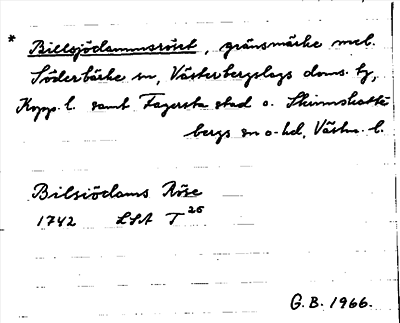 * Billsjödammsröset, gränsmärke mel.
Söderbärke sn, Västerbergslags doms. hj,
Kopp. l. samt Fagersta stad o. Skinnskatte
bergs sn o. hd, Västm. l.
Bilsiödams Röse
1742 LSA T 26
G.B. 1966.